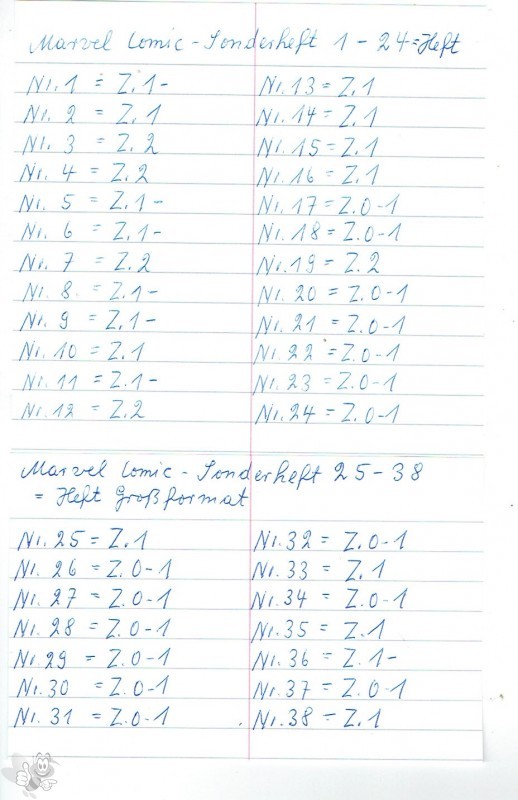 Marvel Comic-Sonderheft 1-24=Heft
Nr. 1 = Z. 1-
Nr. 2 = Z. 1
Nr. 3 = Z. 2
Nr. 4 = Z. 2
Nr. 5 = Z. 1-
Nr. 6 = Z. 1-
Nr. 7 = Z. 2
Nr. 8 = Z. 1-
Nr. 9 = Z. 1-
Nr. 10 = Z. 1
Nr. 11 = Z. 1-
Nr. 12 = Z. 2
Nr. 13 = Z. 1
Nr. 14 = Z. 1
Nr. 15 = Z. 1
Nr. 16 = Z. 1
Nr. 17 = Z. 0-1
Nr. 18 = Z. 0-1
Nr. 19 = Z. 2
Nr. 20 = Z. 0-1
Nr. 21 = Z. 0-1
Nr. 22 = Z. 0-1
Nr. 23 = Z. 0-1
Nr. 24 = Z. 0-1
Marvel Comic-Sonderheft 25-38
= Heft Großformat
Nr. 25 = Z. 1
Nr. 26 = Z. 0-1
Nr. 27 = Z. 0-1
Nr. 28 = Z. 0-1
Nr. 29 = Z. 0-1
Nr. 30 = Z. 0-1
Nr. 31 = Z. 0-1
Nr. 32 = Z. 0-1
Nr. 33 = Z. 1
Nr. 34 = Z. 0-1
Nr. 35 = Z. 1
Nr. 36 = Z. 1-
Nr. 37 = Z. 0-1
Nr. 38 = Z. 1